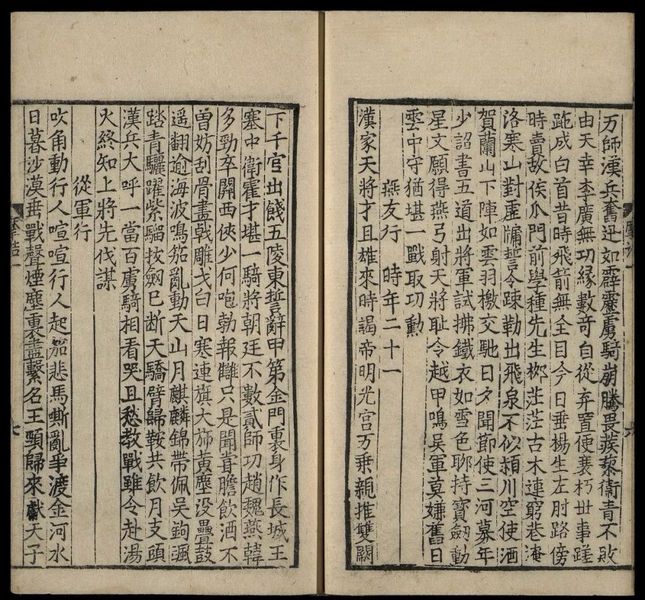 万師漢兵奮迅如霹靂虜騎崩騰畏蒺藜衛青不敗
由天幸李廣無功緣數奇自從弃置便衰朽世事蹉
跎成白首昔時飛箭無全目今日垂楊生左肘路傍
時賣故侯瓜門前學種先生柳茫茫古木連窮巷
洛寒山對虛牖誓令疎勒出飛泉不似潁川空使酒
賀蘭山下陣如雲羽檄交馳日夕聞節使三河募年
少詔書五道出將軍試拂鐵衣如雪色聊持寶劒動
星文願得燕弓射天將恥令越甲鳴吳軍莫嫌舊日
雲中守猶堪一戰取功勳
燕友行 時年二十一
漢家天將才且雄來時謁帝明光宮万乘親推雙闕
下千官出餞五陵東誓辭甲第金門裏身作長城玉
塞中衛霍才堪一騎將朝廷不數貳師功趙魏燕韓
多勁卒關西俠少何咆勃報讎只是聞嘗膽飲酒不
曾妨刮骨畫戟雕戈白日寒連旗大旆黃塵沒疊鼓
遥翻逾海波鳴笳亂動天山月麒麟錦帶佩吳鉤颯
踏青驪躍紫騮按劒已断天驕臂歸鞍共飲月支頭
漢兵大呼一當百虜騎相看哭且愁教戰雖令赴湯
火終知上將先伐謀
從軍行
吹角動行人喧喧行人起笳悲馬嘶亂爭渡金河水
日暮沙漠垂戰聲煙塵裏盡繫名王頸歸來獻天子